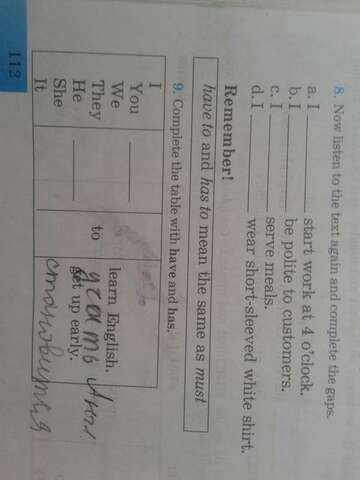 8. Now listen to the text again and complete the gaps.
a. I ________ start work at 4 o'clock.
b. I ________ be polite to customers.
c. I ________ serve meals.
d. I ________ wear short-sleeved white shirt.
Remember!
have to and has to mean the same as must
9. Complete the table with have and has.
I
You
We
They
He
She
It
________
________
to
learn English.
учать
get up early.
становится
112